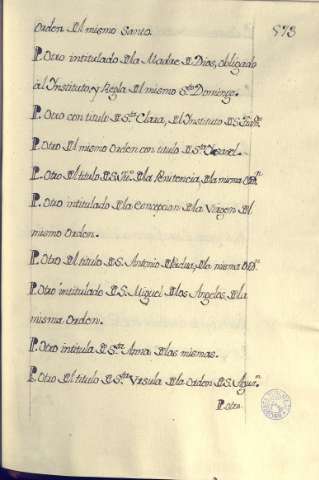 orden del mismo Santo.
593
P. Otro intitulado de la Madre de Dios, obligado
al Instituto, y Regla del mismo Sto. Domingo.
P. Otro con titulo de Sta. Clara, del Instituto de S. Franco.
P. Otro del mismo Orden con titulo de Sta.
P. Otro del titulo de S. Franco. de la Penitencia, de la misma Orn.
P. Otro intitulado de la Concepcion de la Virgen del
mismo Orden.
P. Otro del titulo de S. Antonio de Padua, de la misma Orn.
P. Otro intitulado de S. Miguel de los Angeles, de la
misma Orden.
P. Otro intitula de Sta. Anna de las mismas.
P. Otro del titulo de Sta. Ursula de la Orden de S. Agusn.
P. otro